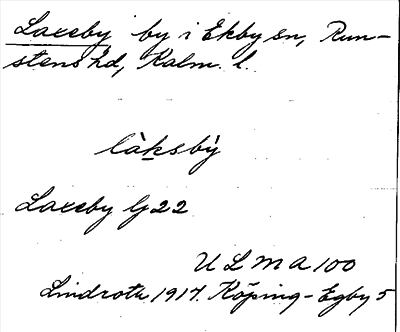 Laxeby by i Ekby sn, Run-
stens hd, Kalm. l.
làksbỳ
Laxeby Gj 22
ULMA 100
Lindroth 1917. Köping-Egby 5